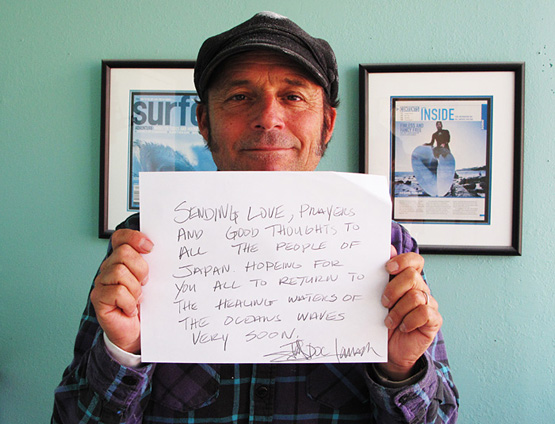 surf
INSIDE
SENDING LOVE, PRAYERS
AND GOOD THOUGHTS TO
ALL THE PEOPLE OF
JAPAN. HOPEING FOR
YOU ALL TO RETURN TO
THE HEALING WATERS OF
THE OCEANS WAVES
VERY SOON.
DOC